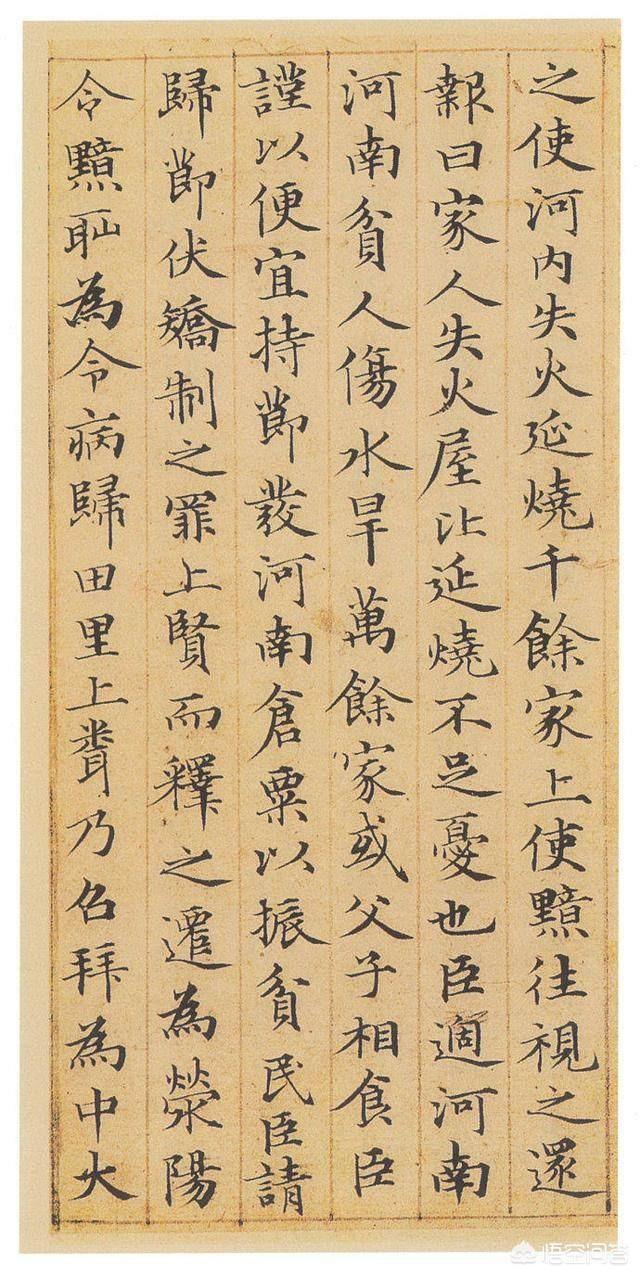 之使河內失火延燒千餘家上使黯往視之還
報曰家人失火屋比延燒不足憂也臣適河南
河南貧人傷水旱萬餘家或父子相食臣
謹以便宜持節發河南倉粟以振貧民臣請
歸節伏矯制之罪上賢而釋之遷為滎陽
令黯恥為令病歸田里上聞乃召拜為中大
悟空问答